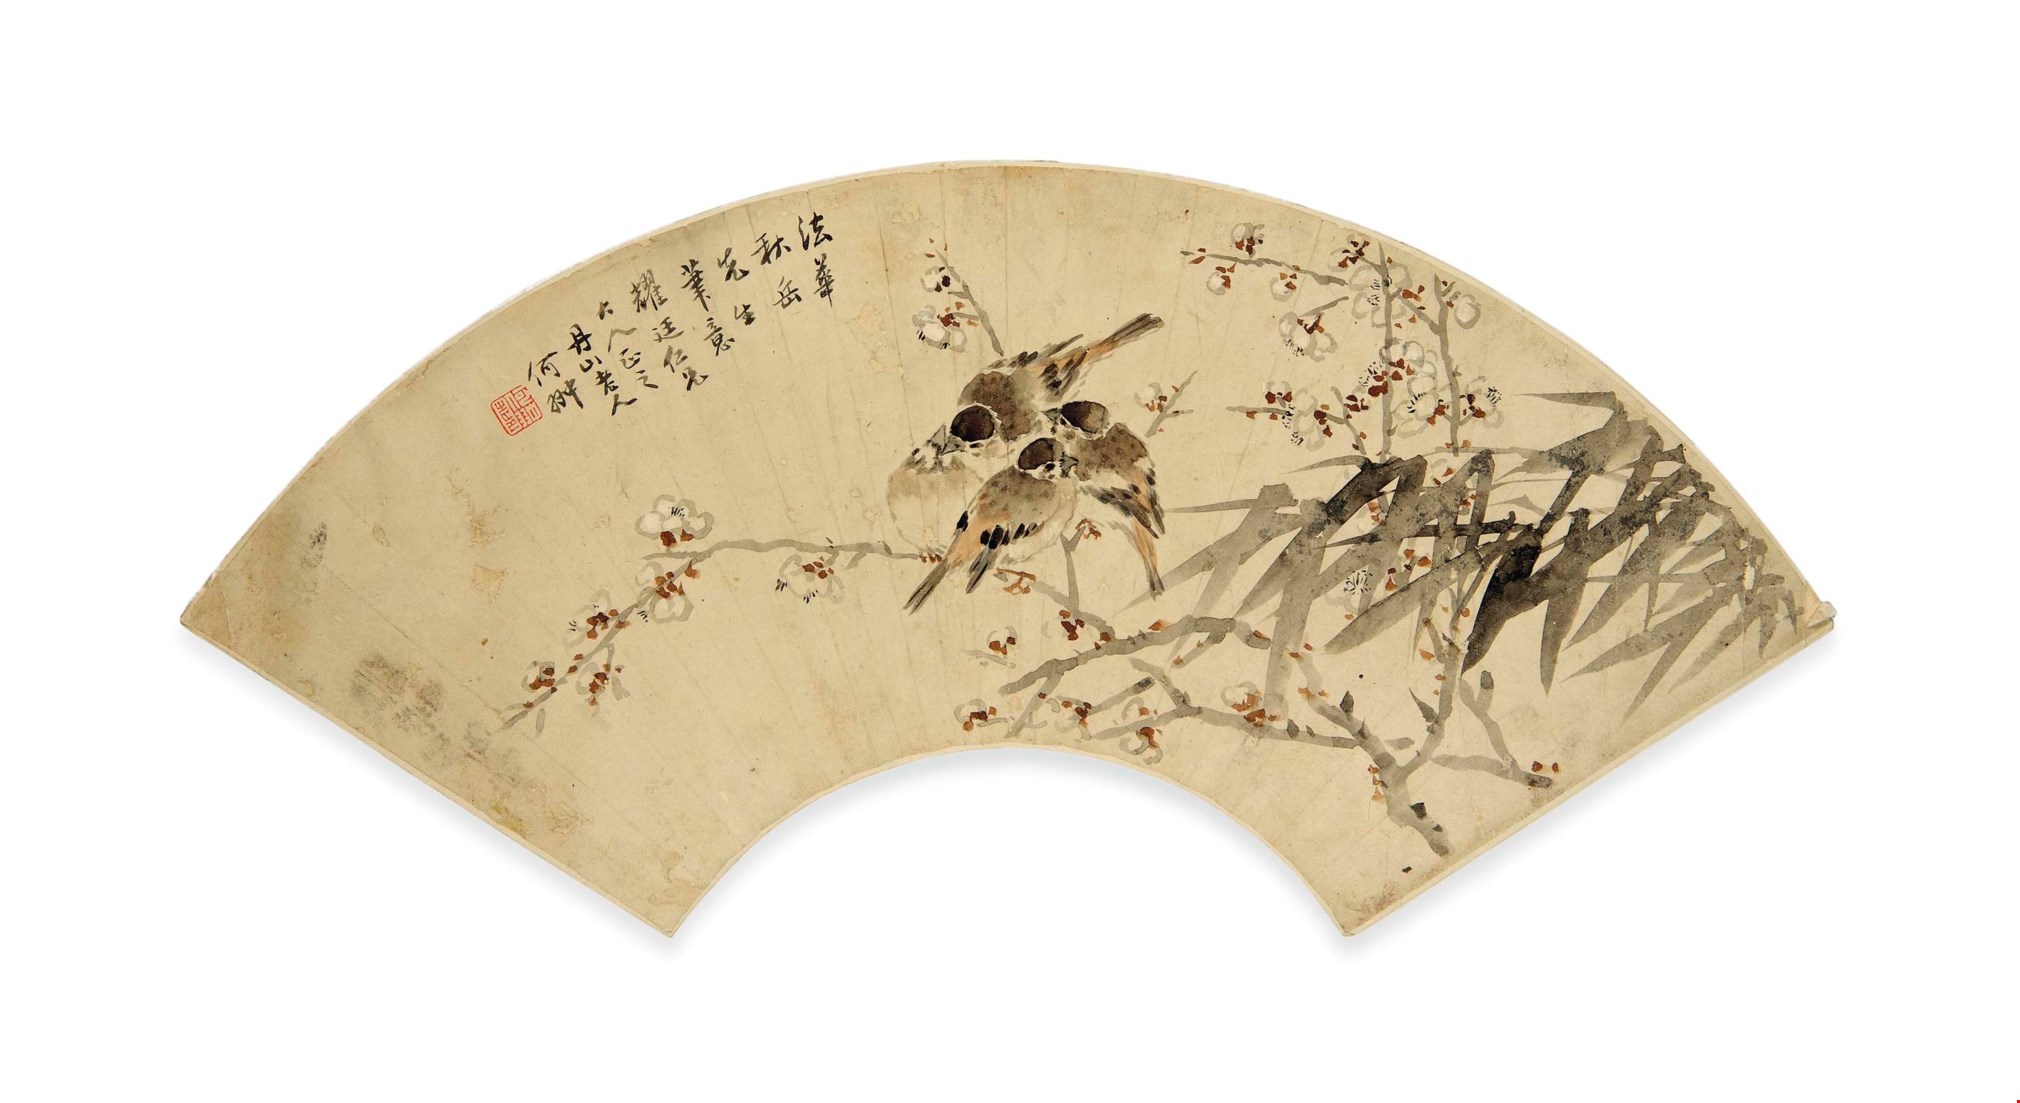 法華
秋岳
先生
筆意
耀廷仁兄
大人正之
丹山老人
何翀